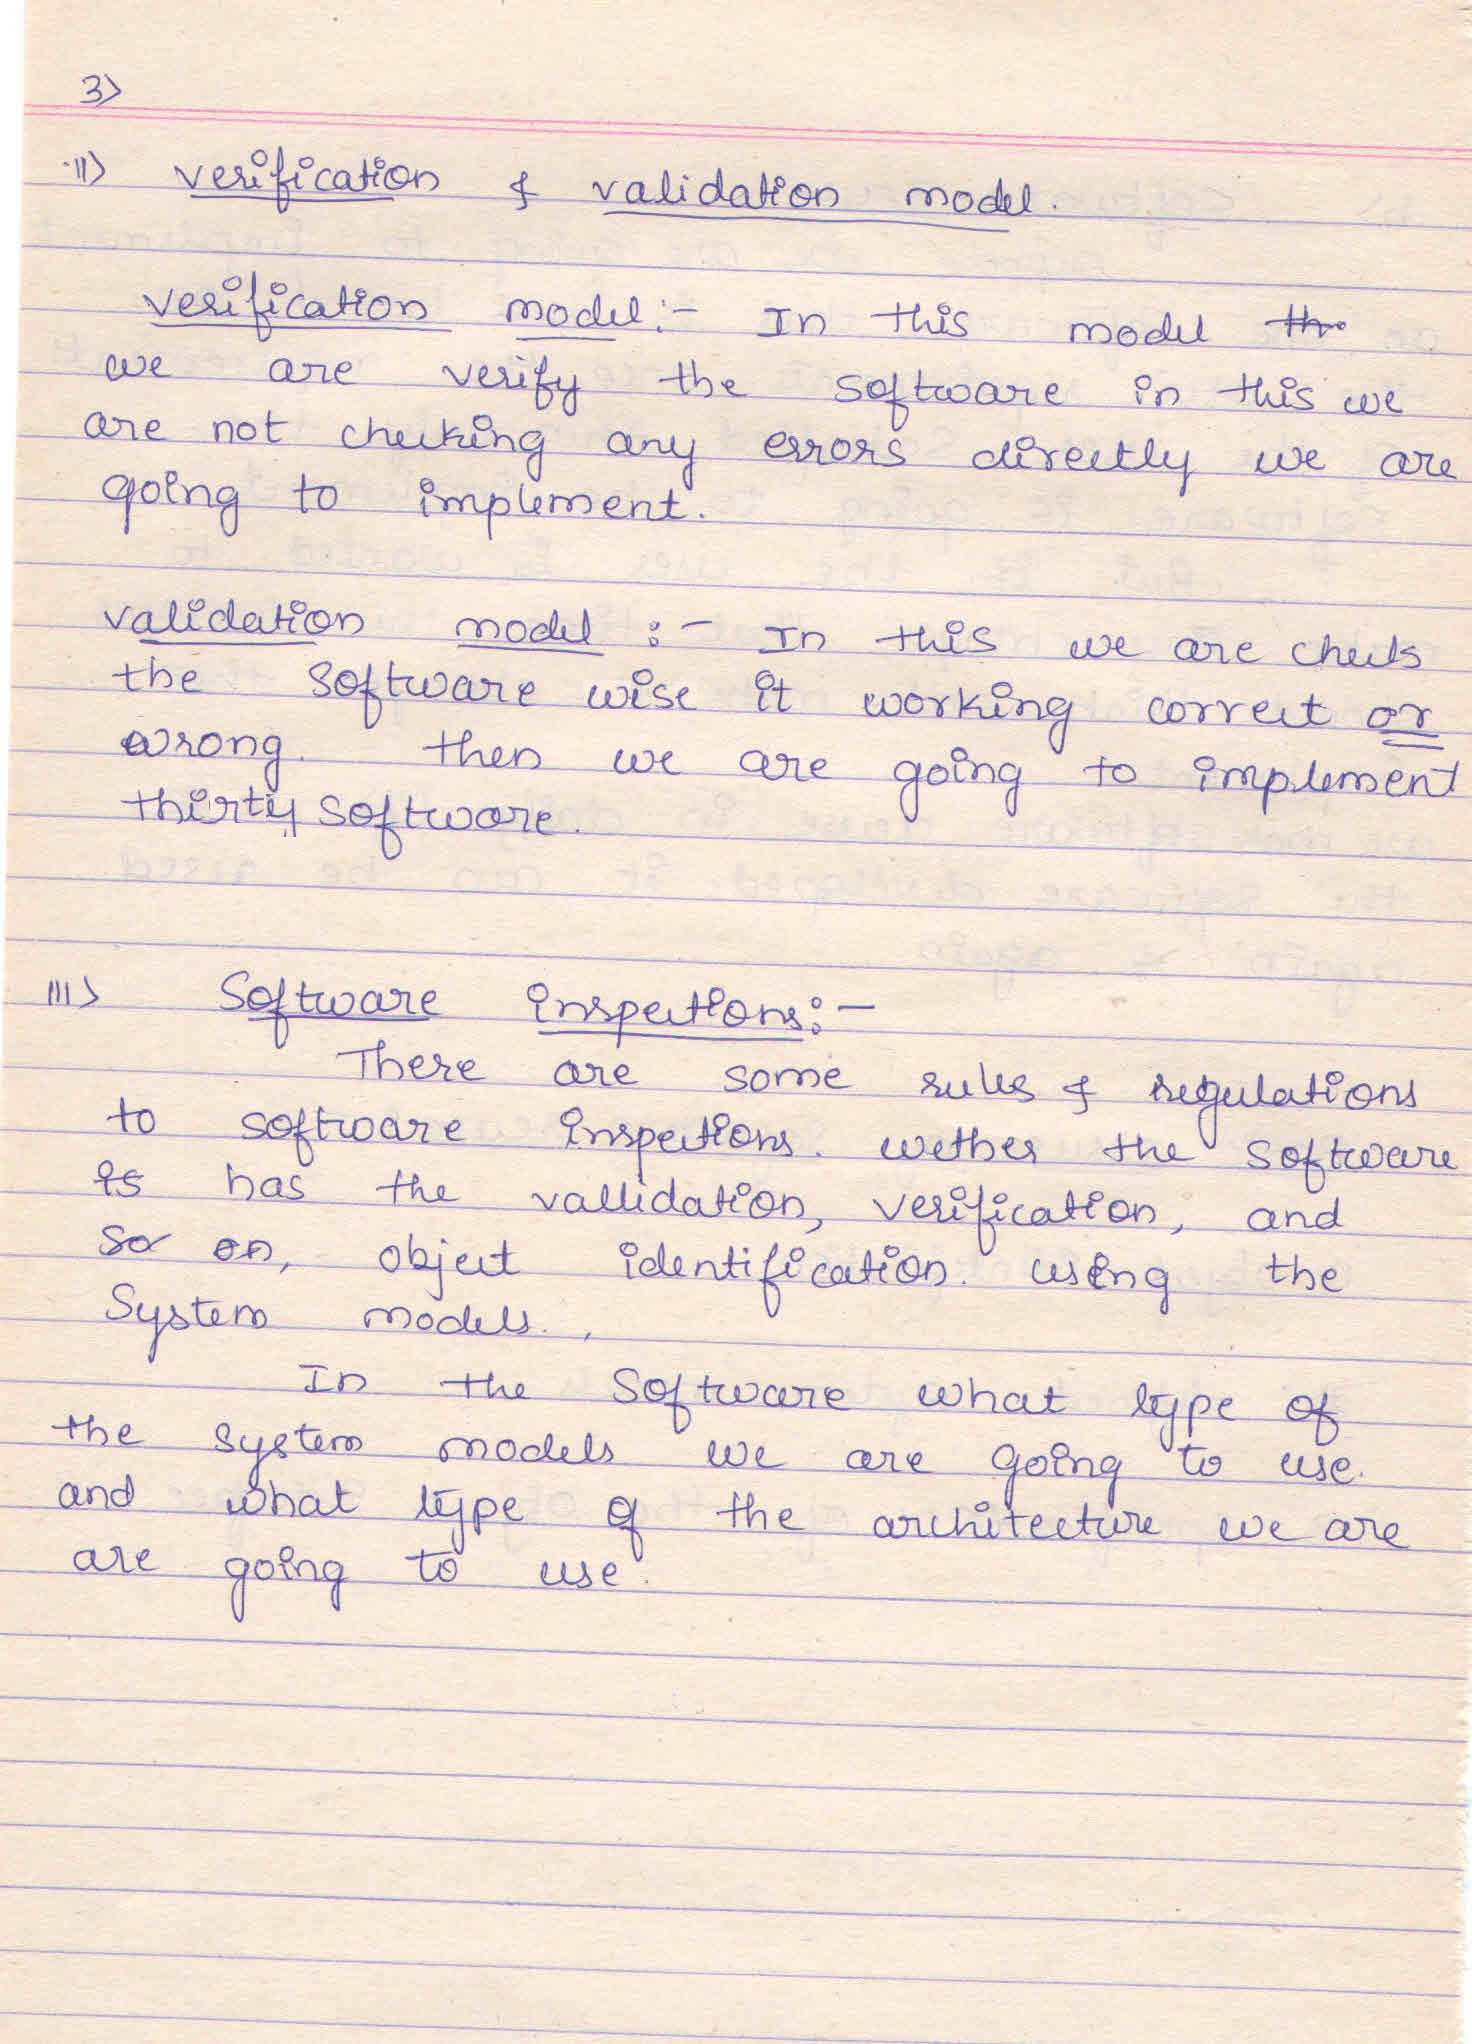 3>
ii> verification & validation model.
verification model:- In this model
we are verify the software in this we
are not checking any errors directly we are
going to implement.
validation model :- In this we are checks
the software wise it working correct or
wrong. then we are going to implement
thirty software.
iii> Software inspections:-
There are some rules & regulations
to software inspections. wether the software
is has the vallidation, verification, and
so on, object identification. using the
System models.
In the software what type of
the system models we are going to use.
and what type of the architecture we are
are going to use.